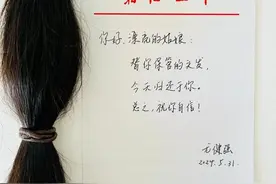 你好，漂亮的姑娘：
替你保管的头发，
今天归还于你。
总之，祝你自信！
2024.5.31.